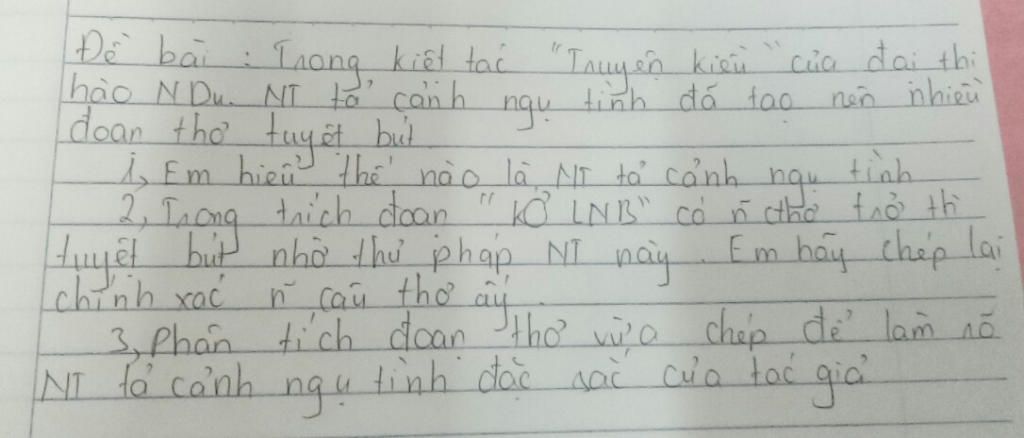 Đề bài : Trong kiệt tác "Truyện kiều" của đại thi
hào NDu. NT tả cảnh ngụ tình đã tạo nên nhiều
đoạn thơ tuyệt bút
1, Em hiểu thế nào là NT tả cảnh ngụ tình
2, Trong trích đoạn "KỞ LNB" có n~ cthơ trở th
tuyệt bút nhờ thủ pháp NT này. Em hãy chép lại
chính xác n~ câu thơ ấy.
3, Phân tích đoạn thơ vừa chép để làm rõ
NT tả cảnh ngụ tình đặc sắc của tác giả